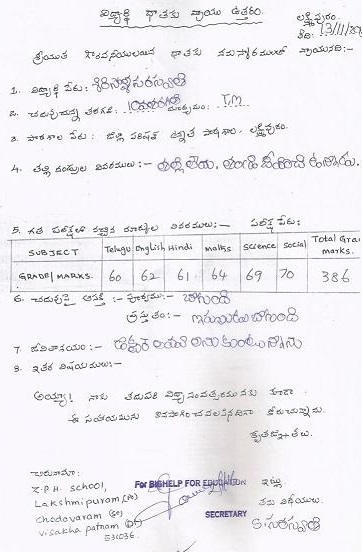 విద్యార్థి దాతకు వ్రాయు ఉత్తరం.
లక్ష్మీపురం.
తేది: 13/11/
శ్రీయుత గౌరవనీయులయిన దాతకు నమస్కారములతో వ్రాయునది:-
1. విద్యార్థి పేరు:
2. చదువుచున్న తరగతి: మాధ్యమం: T.M
3. పాఠశాల పేరు: జిల్లా పరిషత్ ఉన్నత పాఠశాల. లక్ష్మీపురం.
4. తల్లి దండ్రుల వివరములు:- తల్లి లేదు.
5. గత పరీక్షలో వచ్చిన మార్కుల వివరములు:- పరీక్ష పేరు:
SUBJECT Telugu English Hindi maths Science Social Total Gra marks.
GRADE/MARKS. 60 62 61 64 69 70 386
6. చదువుపై ఆసక్తి :- పూర్వము:- బాగుంది
ప్రస్తుతం:- ఇప్పుడు బాగుంది
7. జీవితాశయం:- డాక్టర్ అవుదామనుకుంటున్నాను
8. ఇతర విషయములు:-
అయ్యా! నాకు తదుపరి విద్యాసంవత్సరమునకు కూడా
ఈ సహాయమును కొనసాగించవలసినదిగా కోరుచున్నాను.
కృతజ్ఞతలు.
చిరునామా:
Z.P.H. School,
Lakshmipuram,(PO)
Chodavaram (SO)
Visakha patnam (Dt)
531036.
For BIGHELP FOR EDUCATION
SECRETARY
ఇట్లు
తమ విధేయులు.
S. సరస్వతి